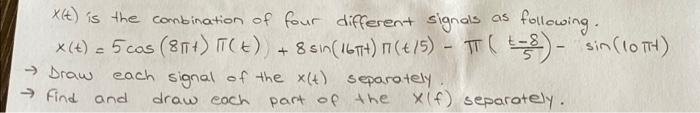 x(t) is the combination of four different signals as following.
x(t) = 5cos(8πt) Π(t) + 8 sin(16πt) Π(t/5) - Π((t-8)/5) - sin(10πt)
→ Draw each signal of the x(t) separately.
→ Find and draw each part of the X(f) separately.